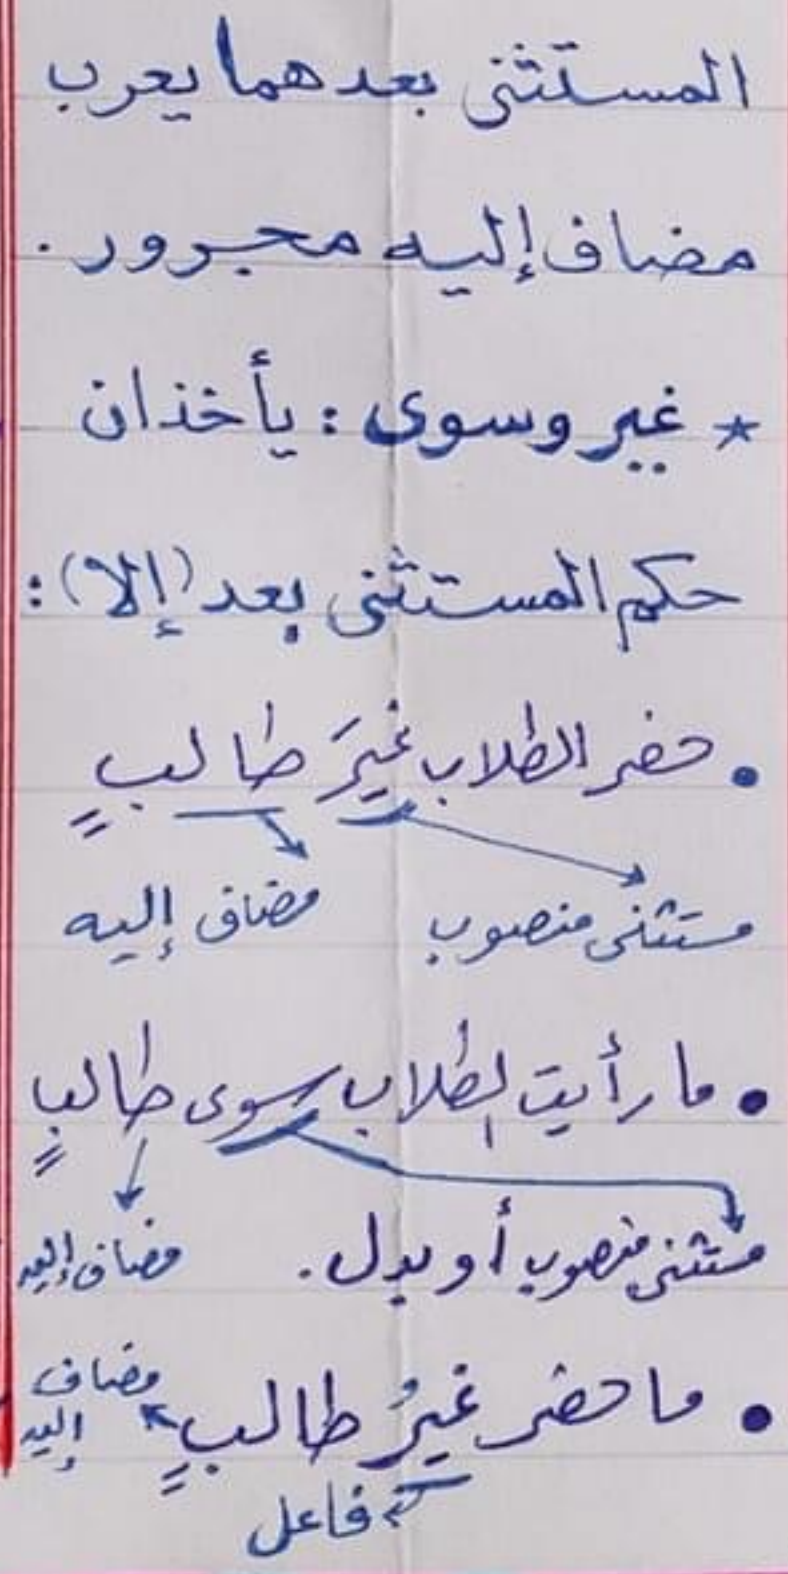 المستثنى بعدهما يعرب
مضاف إليه مجرور.
* غير وسوى : يأخذان
حكم المستثنى بعد (إلا) :
• حضر الطلاب غيرَ طالبٍ
مستثنى منصوب مضاف إليه
• ما رأيت الطلاب سوى طالبٍ
مستثنى منصوب أو بدل. مضاف إليه
• ما حضر غيرُ طالبٍ مضاف إليه
فاعل